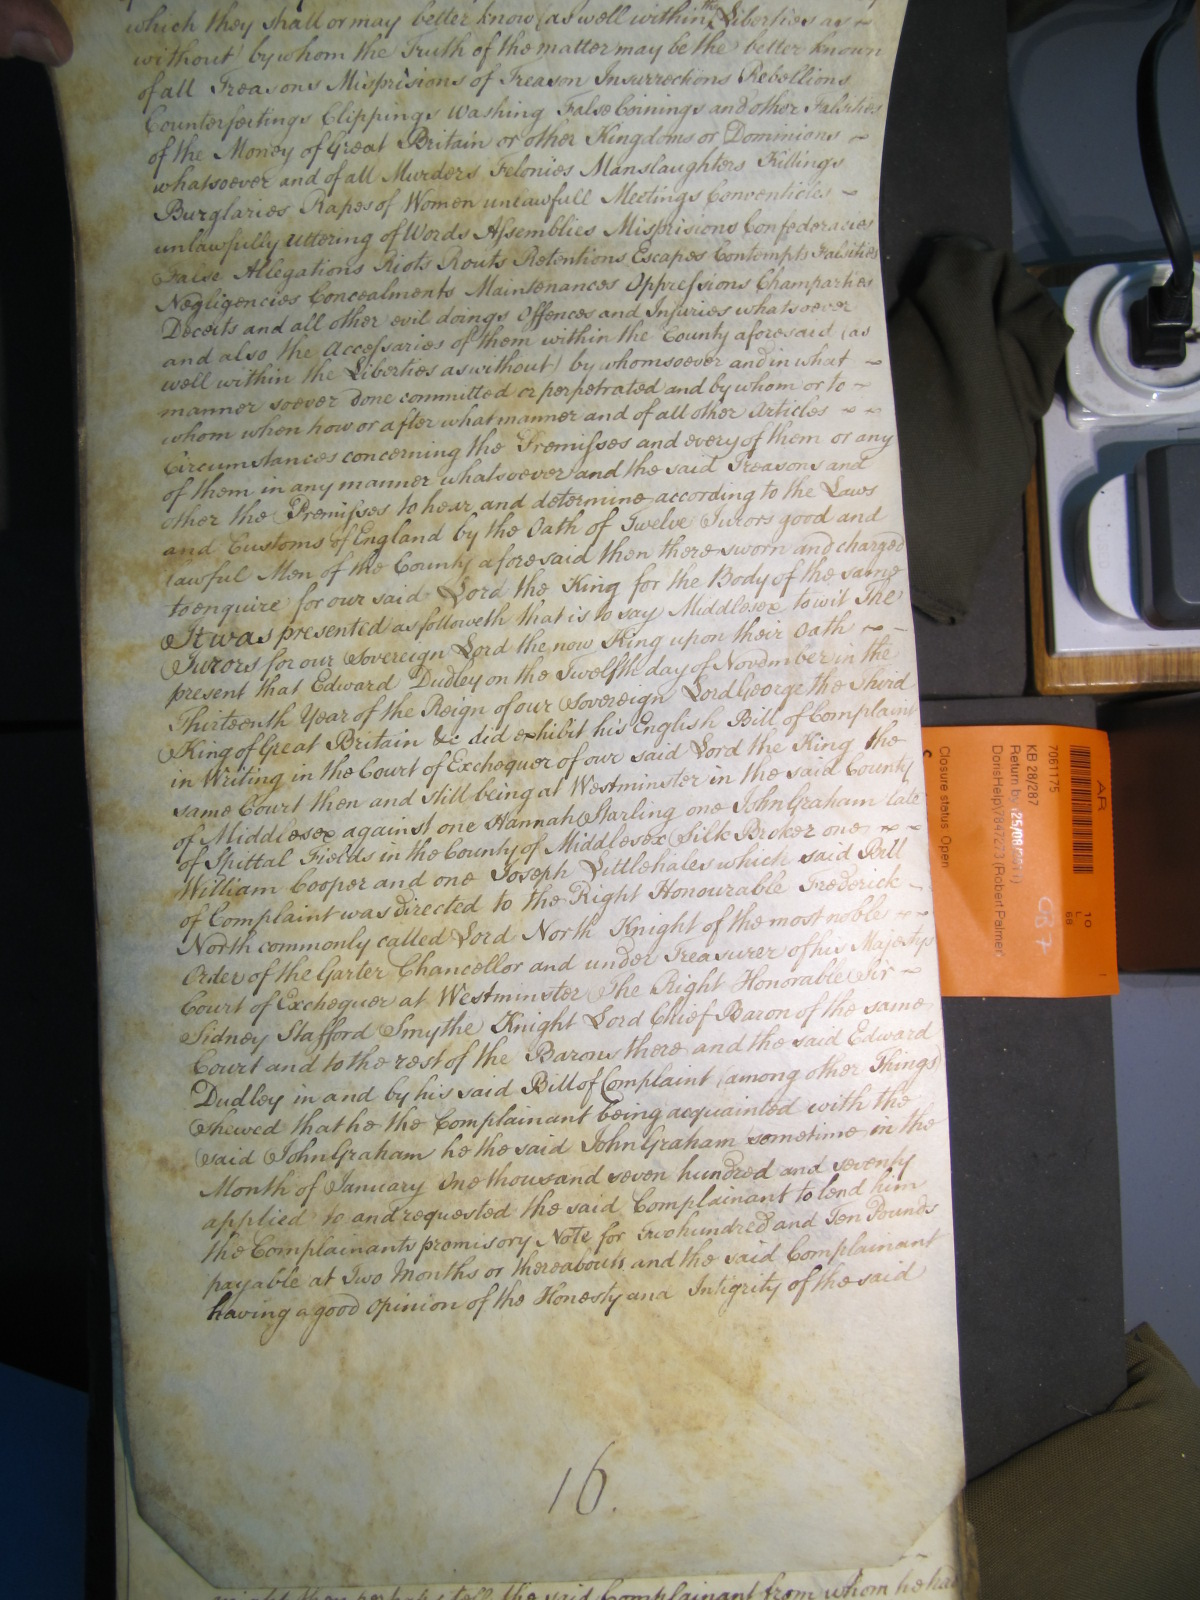 which they shall or may better know (as well within the Liberties as ~
without) by whom the Truth of the matter may be the better known
of all Treasons Misprisions of Treason Insurrections Rebellions
Counterfeitings Clippings Washing False Coinings and other Falsities
of the Money of Great Britain or other Kingdoms or Dominions ~
whatsoever and of all Murders Felonies Manslaughters Killings
Burglaries Rapes of Women unlawfull Meetings Conventicles ~
unlawfully uttering of Words Assemblies Misprisions Confederacies
False Allegations Riots Routs Retentions Escapes Contempts Falsities
Negligencies Concealments Maintenances Oppressions Champarties
Deceits and all other evil doings Offences and Injuries whatsoever
and also the Accessaries of them within the County aforesaid (as
well within the Liberties as without) by whomsoever and in what ~
manner soever done committed or perpetrated and by whom or to ~
whom when how or after what manner and of all other Articles ~ ~
Circumstances concerning the Premisses and every of them or any
of them in any manner whatsoever and the said Treasons and
other the Premisses to hear and determine according to the Laws
and Customs of England by the Oath of Twelve Jurors good and
lawful Men of the County aforesaid then there sworn and charged
to enquire for our said Lord the King for the Body of the same
It was presented as followeth that is to say Middlesex to wit The
Jurors for our Sovereign Lord the now King upon their Oath ~ ~
present that Edward Dudley on the Twelfth day of November in the
Thirteenth Year of the Reign of our Sovereign Lord George the Third
King of Great Britain &c did exhibit his English Bill of Complaint
in Writing in the Court of Exchequer of our said Lord the King the
same Court then and still being at Westminster in the said County
of Middlesex against one Hannah Starling one John Graham late
of Spittal Fields in the County of Middlesex Silk Broker one ~ ~
William Cooper and one Joseph Littlehales which said Bill
of Complaint was directed to the Right Honourable Frederick ~
North commonly called Lord North Knight of the most noble ~ ~
Order of the Garter Chancellor and under Treasurer of his Majestys
Court of Exchequer at Westminster The Right Honorable Sir ~
Sidney Stafford Smythe Knight Lord Chief Baron of the same
Court and to the rest of the Barons there and the said Edward
Dudley in and by his said Bill of Complaint (among other Things)
Shewed that he the Complainant being acquainted with the
said John Graham he the said John Graham sometime in the
Month of January One thousand seven hundred and seventy
applied to and requested the said Complainant to lend him
the Complainants promisory Note for Two hundred and Ten Pounds
payable at Two Months or thereabouts and the said Complainant
having a good Opinion of the Honesty and Intigrity of the said
16.
the said Complainant from whom he had
AR
7061175
KB 28/287
Return by (25/08/2011)
DorisHelp (Robert Palmer)
Closure status Open